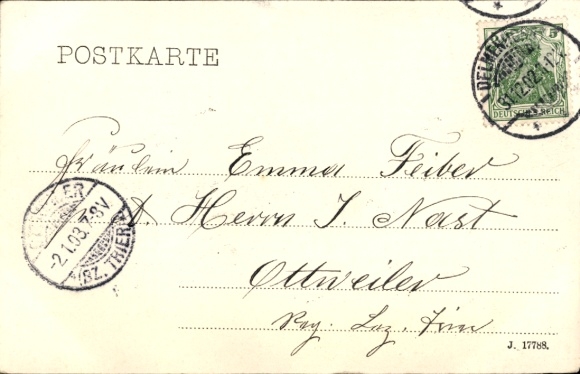 POSTKARTE
5
DEUTSCHES REICH
DELMENHORST
31.12.02
Fräulein Emma Feiber
Herrn J. Nast
Ottweiler
Reg. Bez. Trier
2.1.03. 7-8V
(BZ. TRIER)
J. 17788.